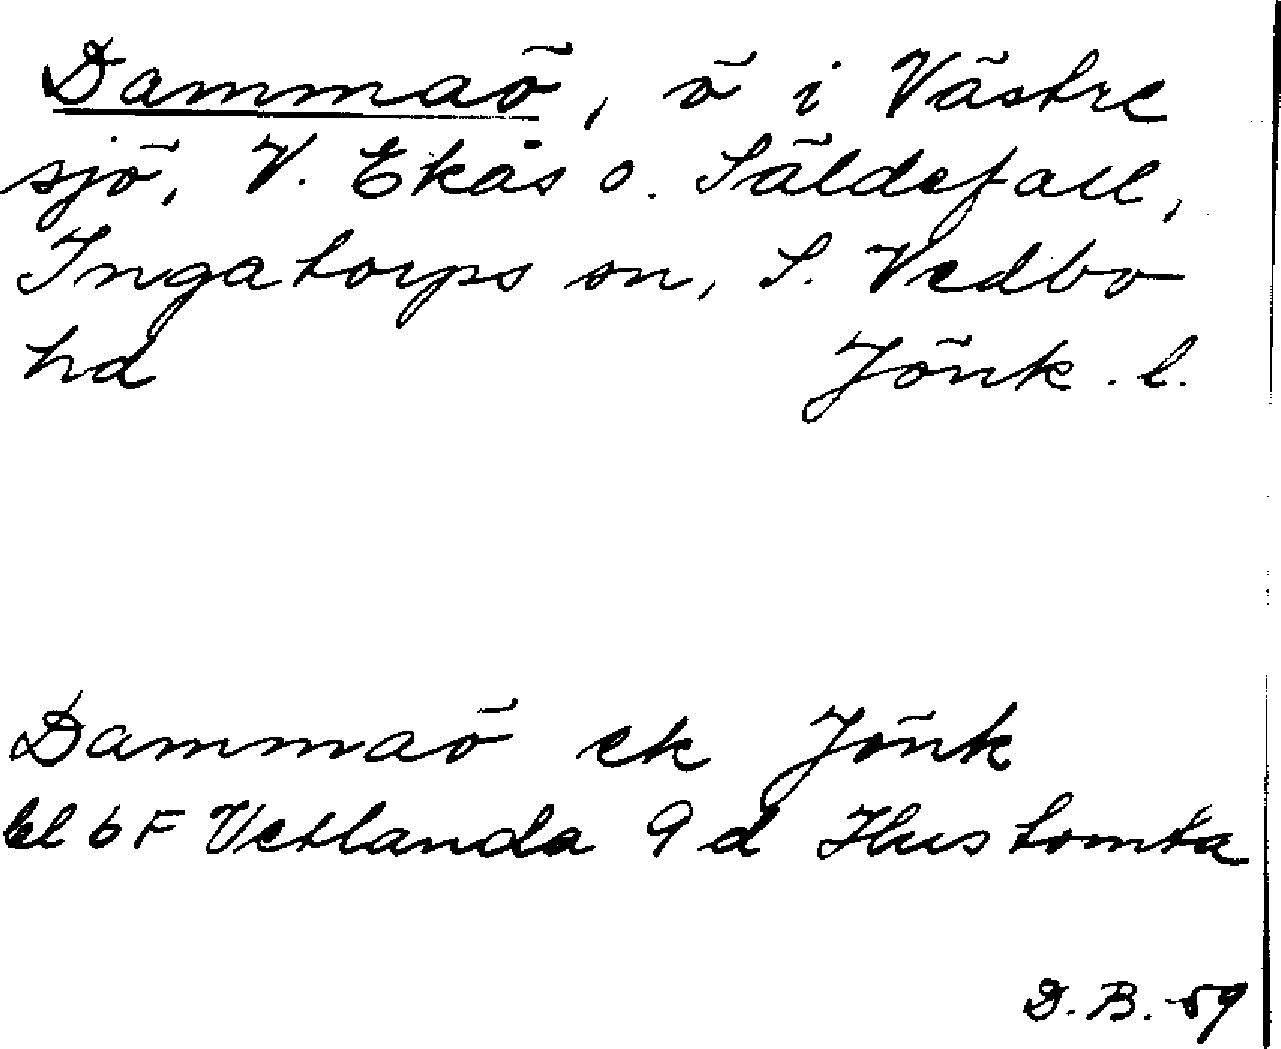 Dammaö, ö i Västre
sjö, V. Ekås o. Säldefall,
Ingatorps sn, S. Vedbo
hd Jönk. l.
Dammaö ek Jönk
bl 6 F Vetlanda 9 d Hustomta
D. B. -59